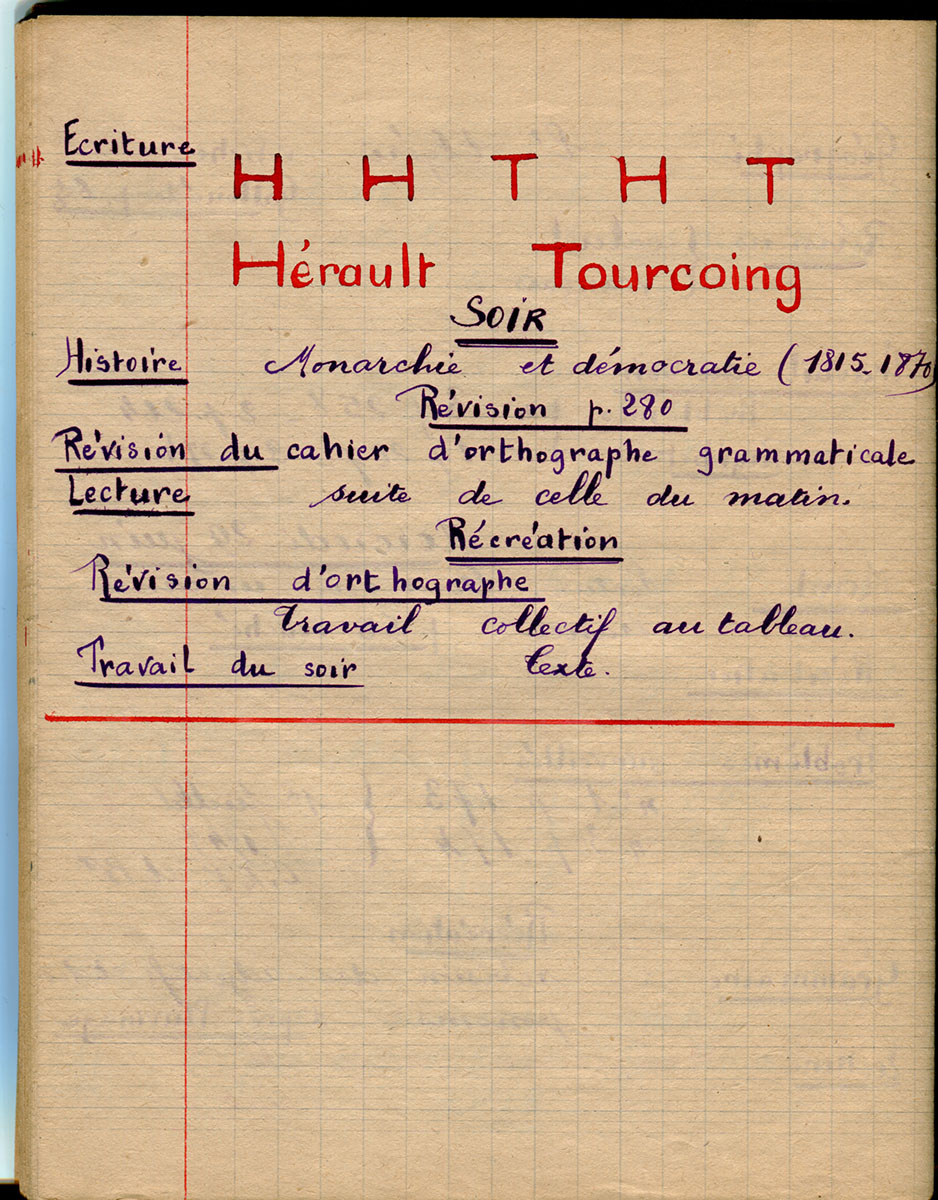 Ecriture H H T H T
Hérault Tourcoing
SOIR
Histoire Monarchie et démocratie (1815-1870)
Révision p. 280
Révision du cahier d'orthographe grammaticale
Lecture suite de celle du matin.
Récréation
Révision d'orthographe
travail collectif au tableau.
Travail du soir texte.